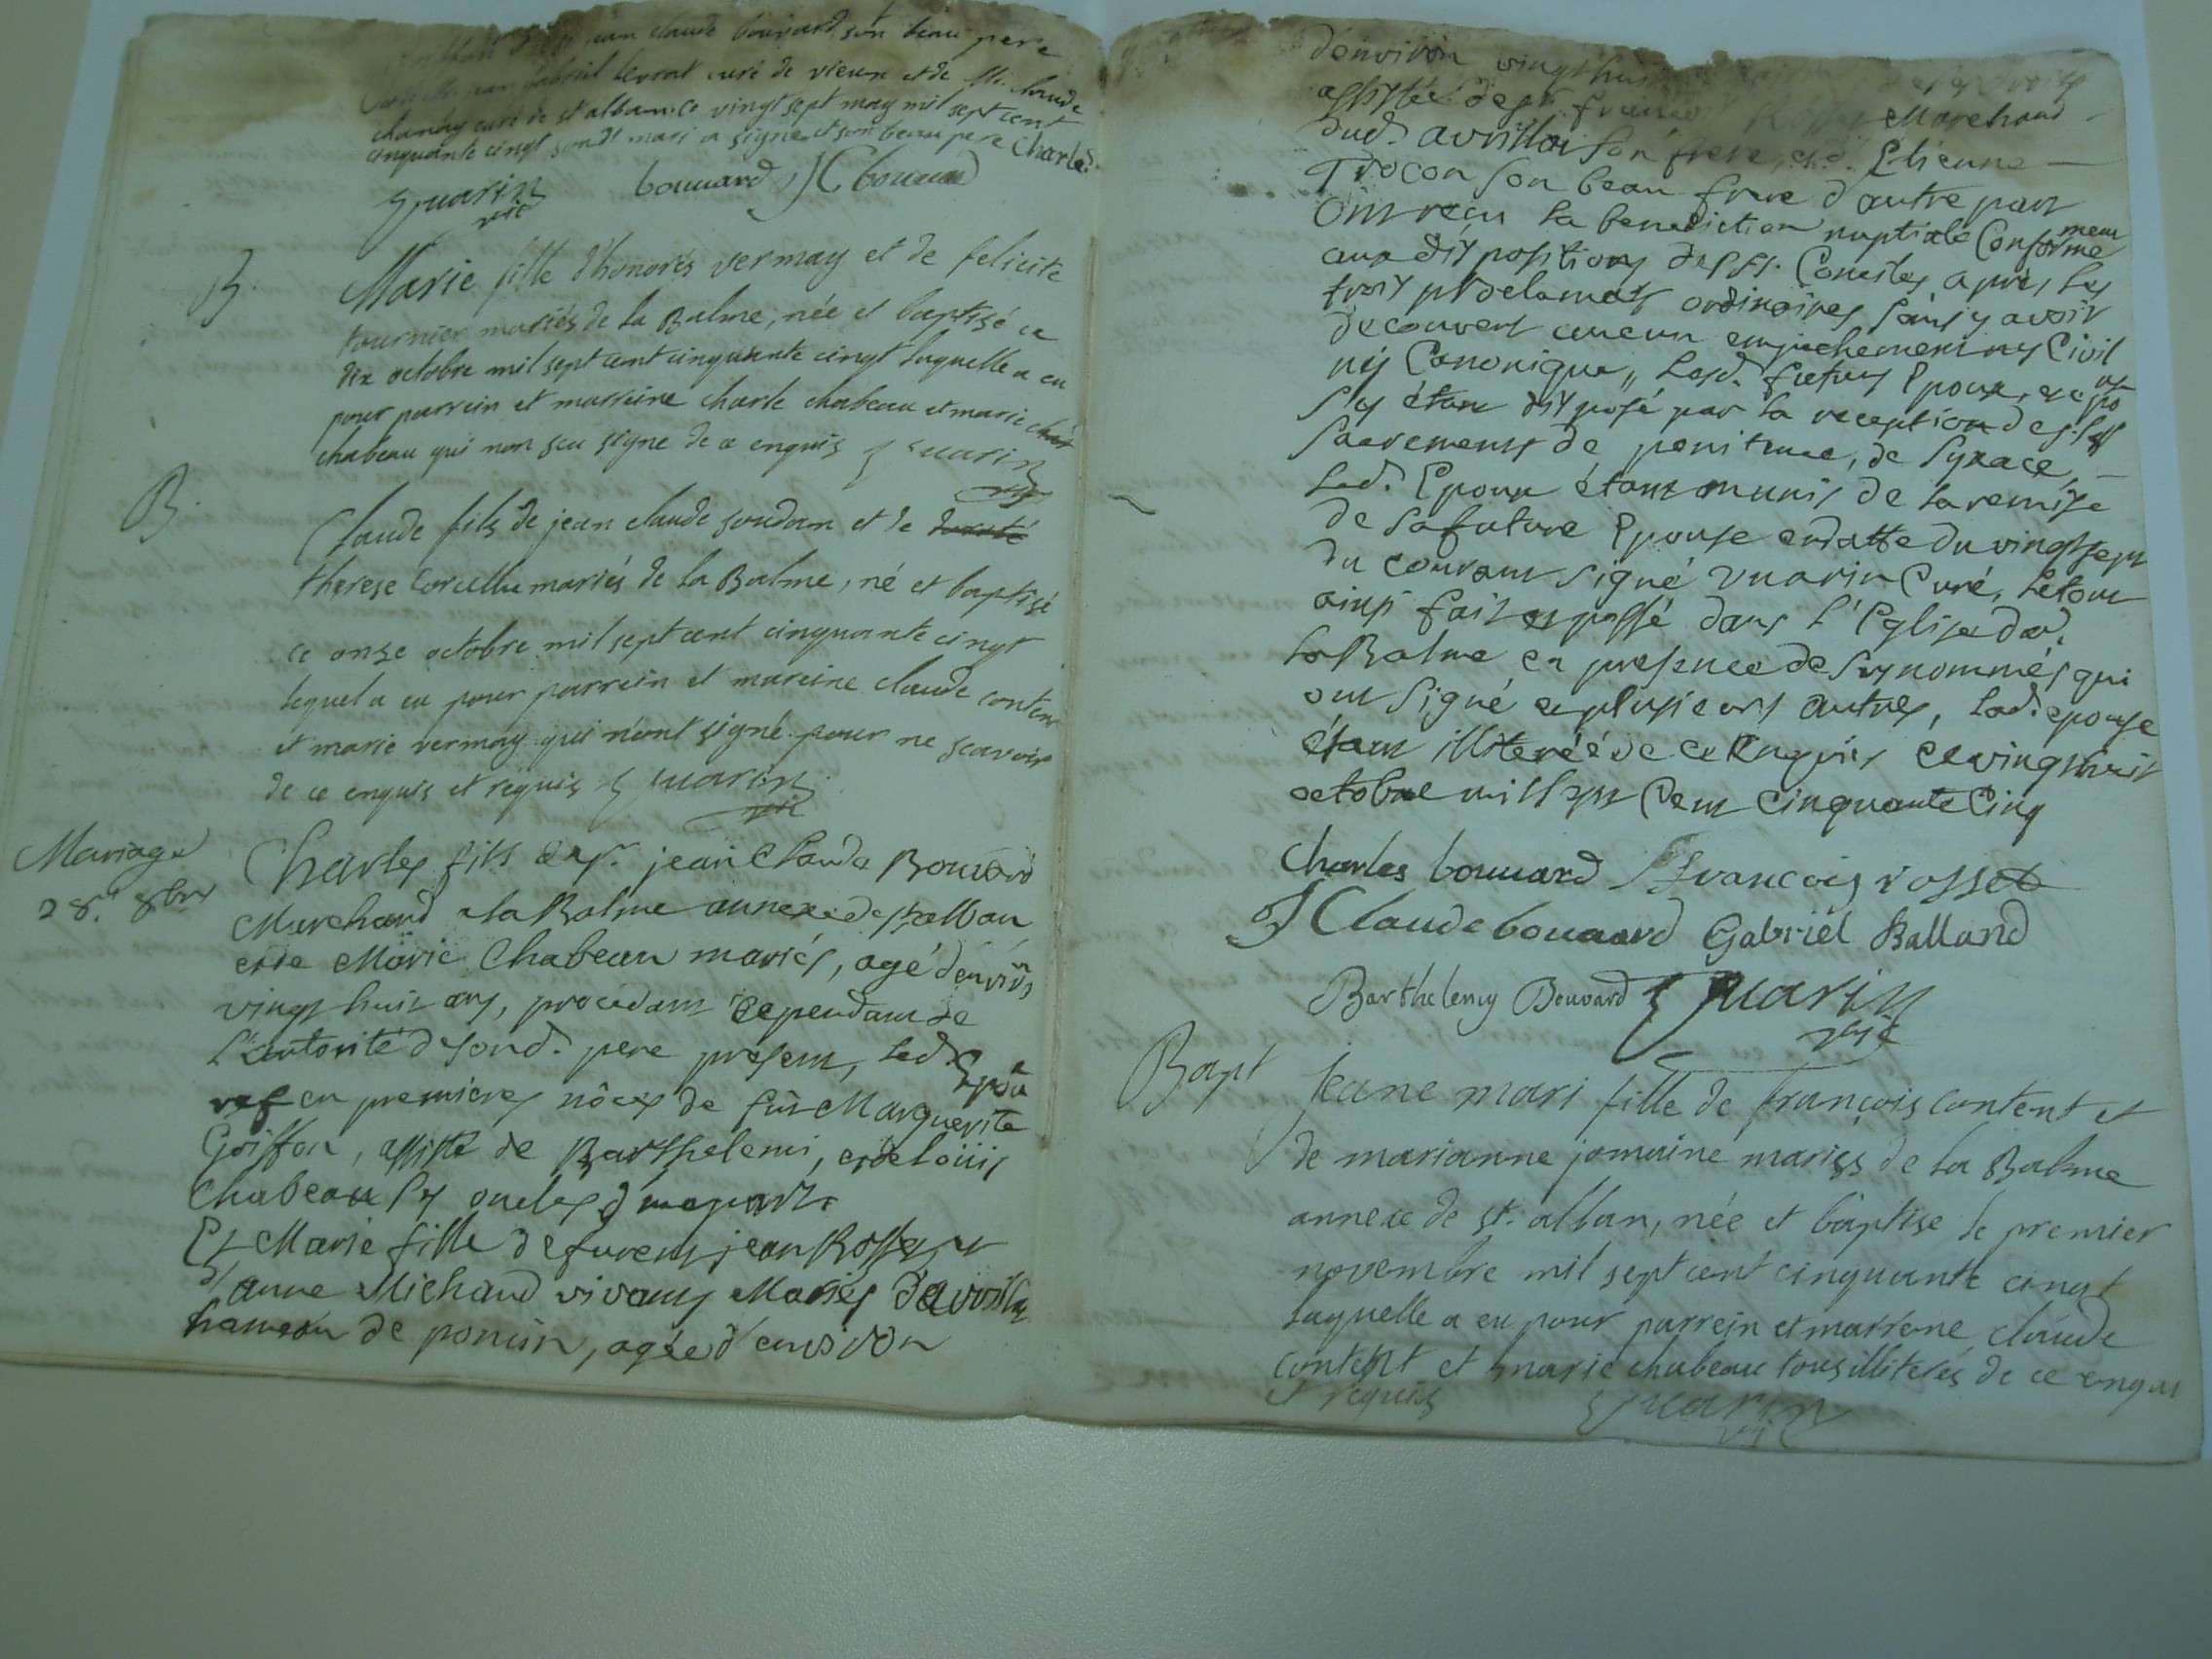 jean claude bouvard son beau pere
curé de vieux et de Mr. claude
curé de st alban. ce vingt sept may mil sept cent
cinquante cinqt sondt mari a signe et son beau pere Charles
bouuard JC bouuard
Vuarin
vic
B.
Marie fille d'honorés vermay et de felicite
tournier mariés de la Balme, née et baptisé ce
dix octobre mil sept cent cinquante cinqt laquelle a eu
pour parrein et marreine charle chabeau et marie
chabeau qui non sceu signe de ce enquis Vuarin
vic
B.
Claude fils de jean claude goudan et de
therese Corcellu mariés de la Balme, né et baptisé
ce onze octobre mil sept cent cinquante cinqt
lequel a eu pour parrein et mareine claude content
et marie vermay qui n'ont signé pour ne scavoir
de ce enquis et requis Vuarin
vic
Mariage
28. 8bre
Charles fils de sr. jean Claude Bouvard
Marchand a la Balme annexe de st alban
et de Marie Chabeau mariés, agé d'environ
vingt huit ans, procedant dependant de
l'autorité de sond. pere present, led. Epou
vef en premieres nôces de füe Marguerite
Goiffon, assisté de Barthelemi, et de loüis
Chabeau ses oncles d'une part
Et Marie fille de furent jean Rosset et
d'anne Michaud vivans Mariés d'avrillia
hameau de poncin, agée d'environ
d'environ vingt huit
assistée de sr. françois Rosset Marchand
dud. avrillia son frere, et d. Etienne
Trocon son beau frere d'autre part
Ont reçu la benediction nuptiale Conformement
aux dispositions des sts. Conciles apres les
trois proclamats ordinaires sans y avoir
decouvert aucun empechement ny Civil
ny Canonique, Lesd. futurs Epoux, et epouse
s'y étant disposé par la reception des sts
sacrements de penitence, de synaxe,
led. Epoux étant munis de la remise
de sa future Epouse en datte du vingt sept
du courant signé Vuarin Curé, le tout
ainsi fait et passé dans l'Eglise dud.
la Balme en presence des sus nommés qui
ont signé et plusieurs autres, lad. epouse
étant illiterée de ce Enquis ce vingt huit
octobre mil sept Cent Cinquante Cinq
Charles bouuard françois rosset
J Claude bouuard Gabriël Balland
Barthelemy Bouvard Vuarin
vic
Bapt
Jeane mari fille de françois content et
de marianne jomaine mariés de la Balme
annexe de st. alban, née et baptise le premier
novembre mil sept cent cinquante cinqt
laquelle a eu pour parrein et marrene claude
content et marie chabeau tous illiterés de ce enquis
et requis Vuarin
vic